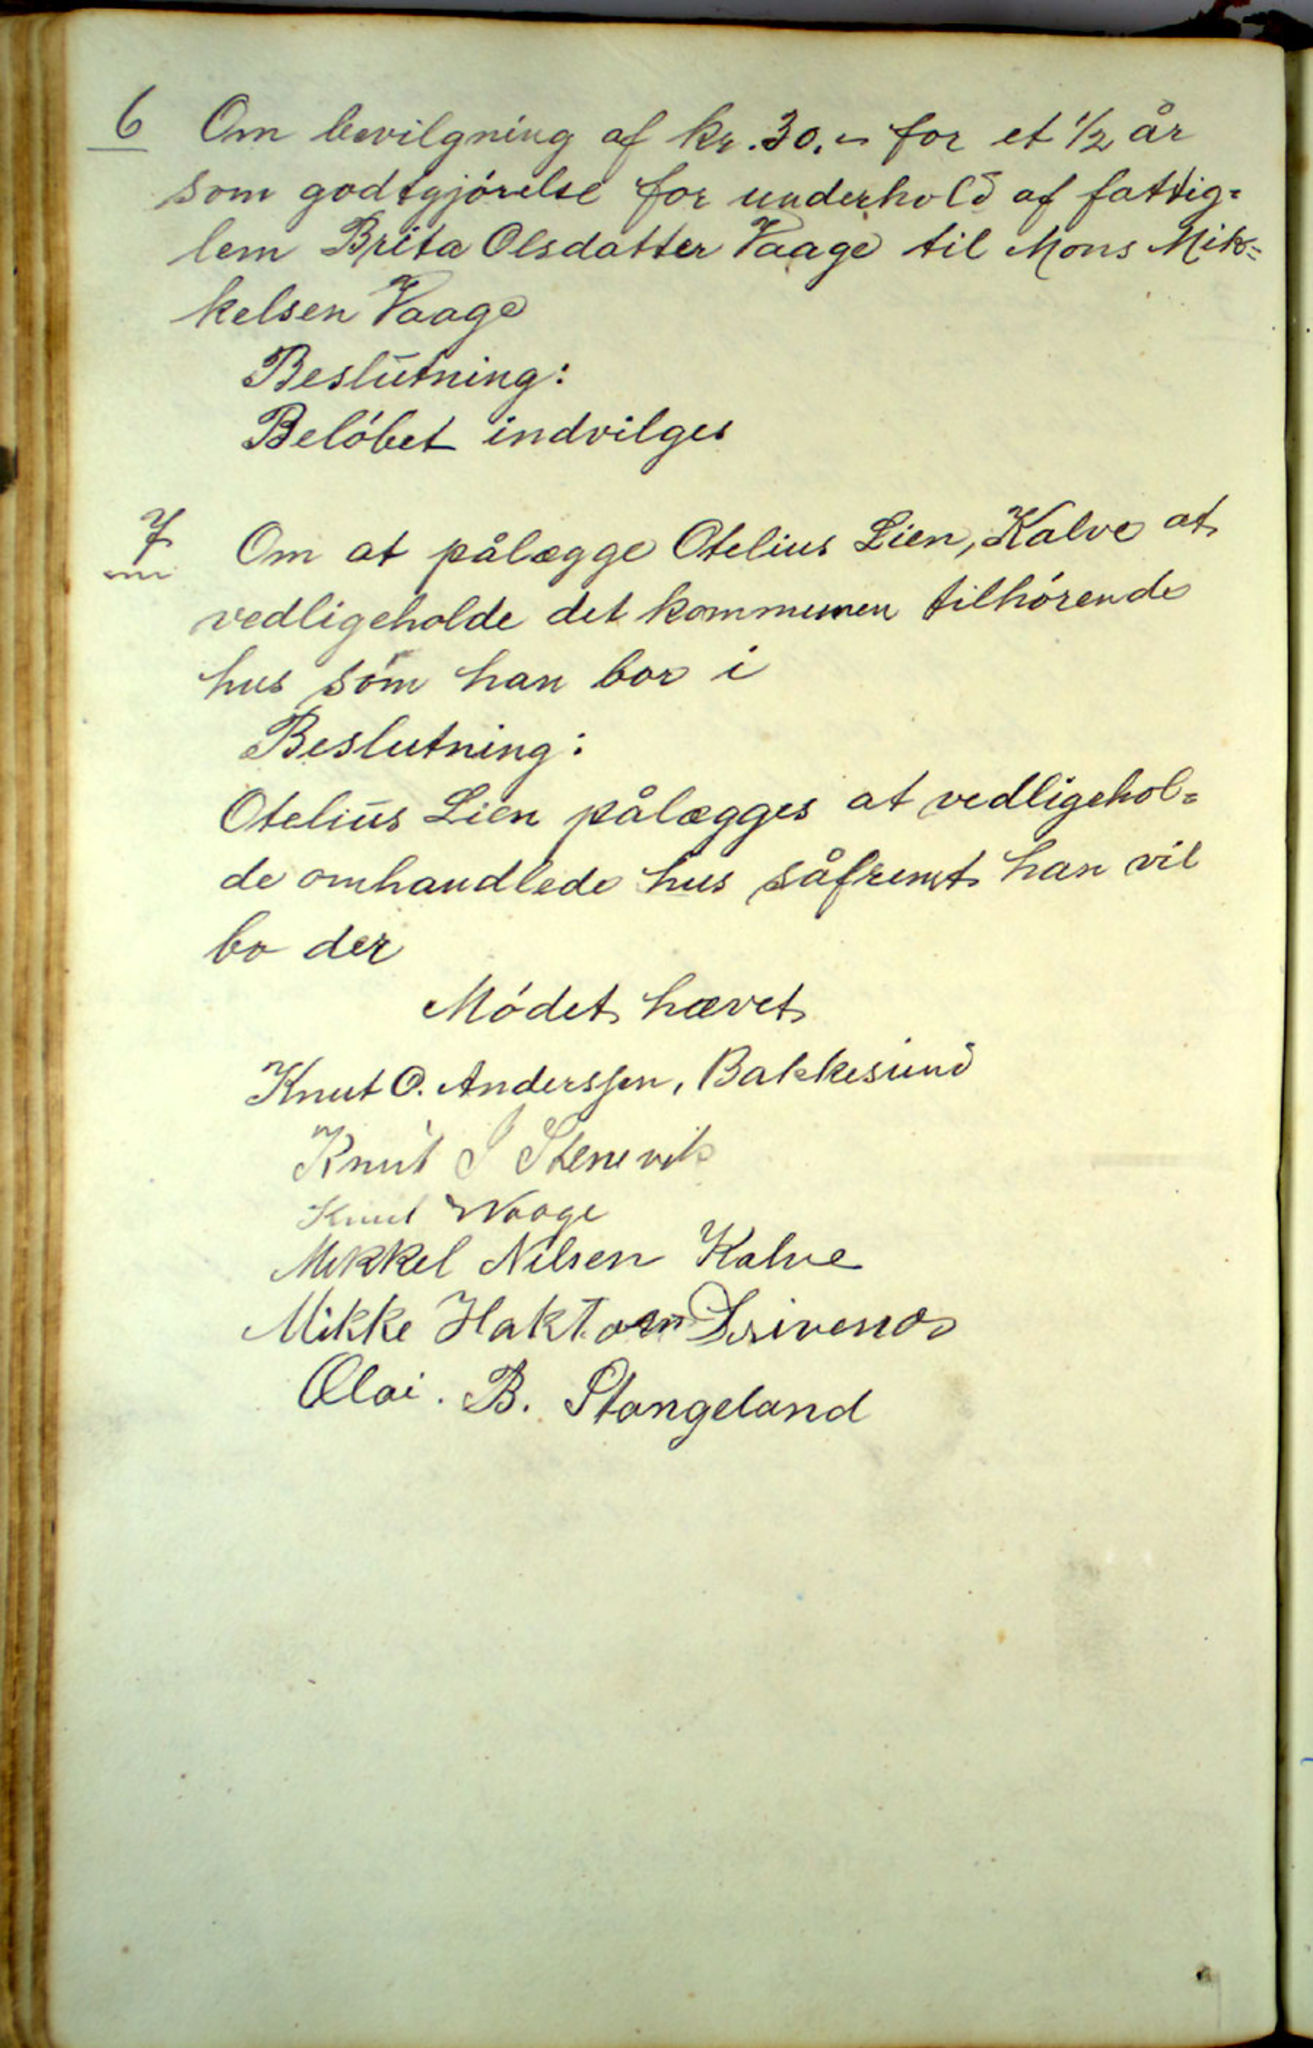 6 Om bevilgning af kr. 30.- for et 1/2 år
som godtgjórelse for underhold af fattig=
lem Brita Olsdatter Vaage til Mons Mik=
kelsen Vaage
Beslutning:
Belóbet indvilges
7 Om at pålægge Otelius Lien, Kalve at
vedligeholde det kommunen tilhórende
hus som han bor i
Beslutning:
Otelius Lien pålægges at vedligehol=
de omhandlede hus såfremt han vil
bo der
Módet hævet
Knut O. Anderssen, Bakkesund
Knut J Stenevik
Knut Waage
Mikkel Nilsen Kalve
Mikke Haktorsen Drivenes
Olai. B. Stangeland